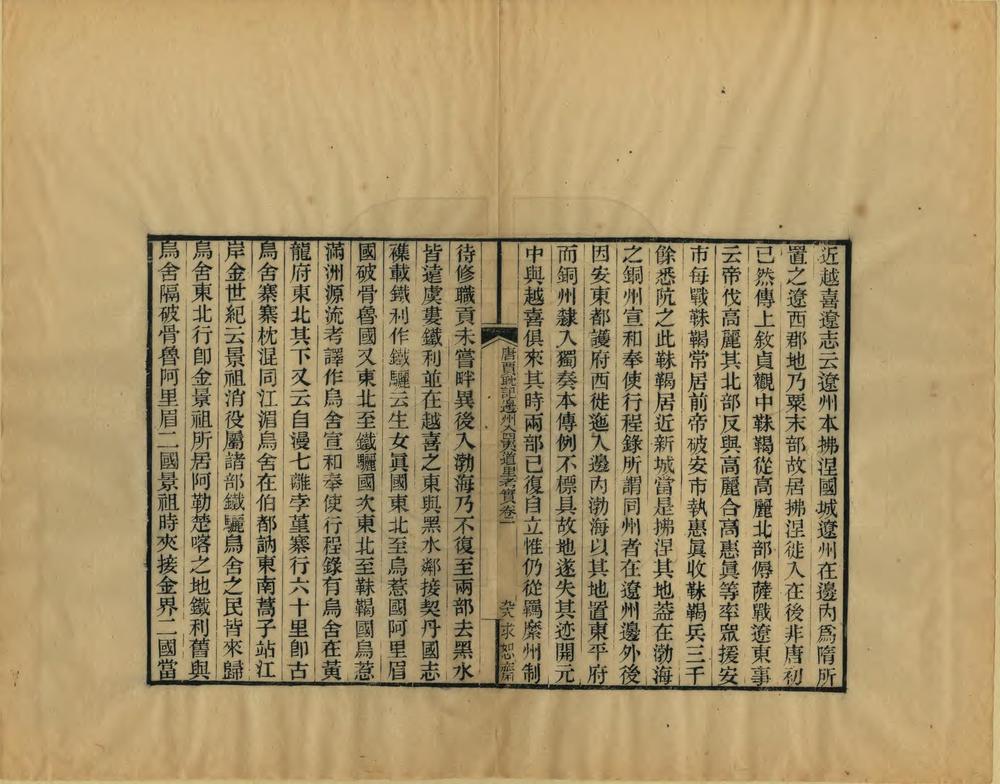 近越喜遼志云遼州本拂涅國城遼州在邊內爲隋所
置之遼西郡地乃粟末部故居拂涅徙入在後非唐初
已然傳上敘貞觀中靺鞨從高麗北部傉薩戰遼東事
云帝伐高麗其北部反與高麗合高惠眞等率眾援安
市每戰靺鞨常居前帝破安市執惠眞收靺鞨兵三千
餘悉阬之此靺鞨居近新城當是拂涅其地蓋在渤海
之銅州宣和奉使行程錄所謂同州者在遼州邊外後
因安東都護府西徙迤入邊內渤海以其地置東平府
而銅州隸入獨奏本傳例不標具故地遂失其迹開元
中與越喜俱來其時兩部已復自立惟仍從羈縻州制
唐賈耽記邊州入四夷道里考實卷二
求恕齋
待修職貢未嘗畔異後入渤海乃不復至兩部去黑水
皆遠虞婁鐵利並在越喜之東與黑水鄰接契丹國志
襍載鐵利作鐵驪云生女眞國東北至烏惹國阿里眉
國破骨魯國又東北至鐵驪國次東北至靺鞨國烏惹
滿洲源流考譯作烏舍宣和奉使行程錄有烏舍在黃
龍府東北其下又云自漫七離孛堇寨行六十里卽古
烏舍寨寨枕混同江湄烏舍在伯都訥東南蒿子站江
岸金世紀云景祖消役屬諸部鐵驪烏舍之民皆來歸
烏舍東北行卽金景祖所居阿勒楚喀之地鐵利舊與
烏舍隔破骨魯阿里眉二國景祖時夾接金界二國當